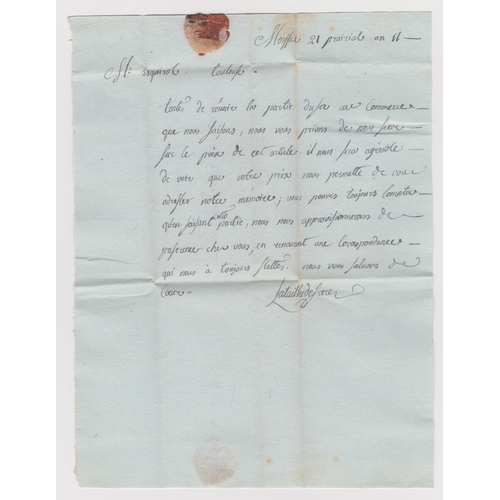 Moissac 21 prairial an 11
Mr Esquirol Toulouse
tentés de réunir la partie du au Commerce
que nous faisons, nous vous prions de nous fixer
sur le prix de cet article. il nous sera agréable
de voir que votre prix nous permette de vous
adresser notre mémoire; vous pouvez toujours compter
qu'en faisant cette partie, nous nous approvisionnerons de
preferance chez vous, en renouant une Correspondance
qui nous à toujours flattés. nous vous saluons de
Coeur